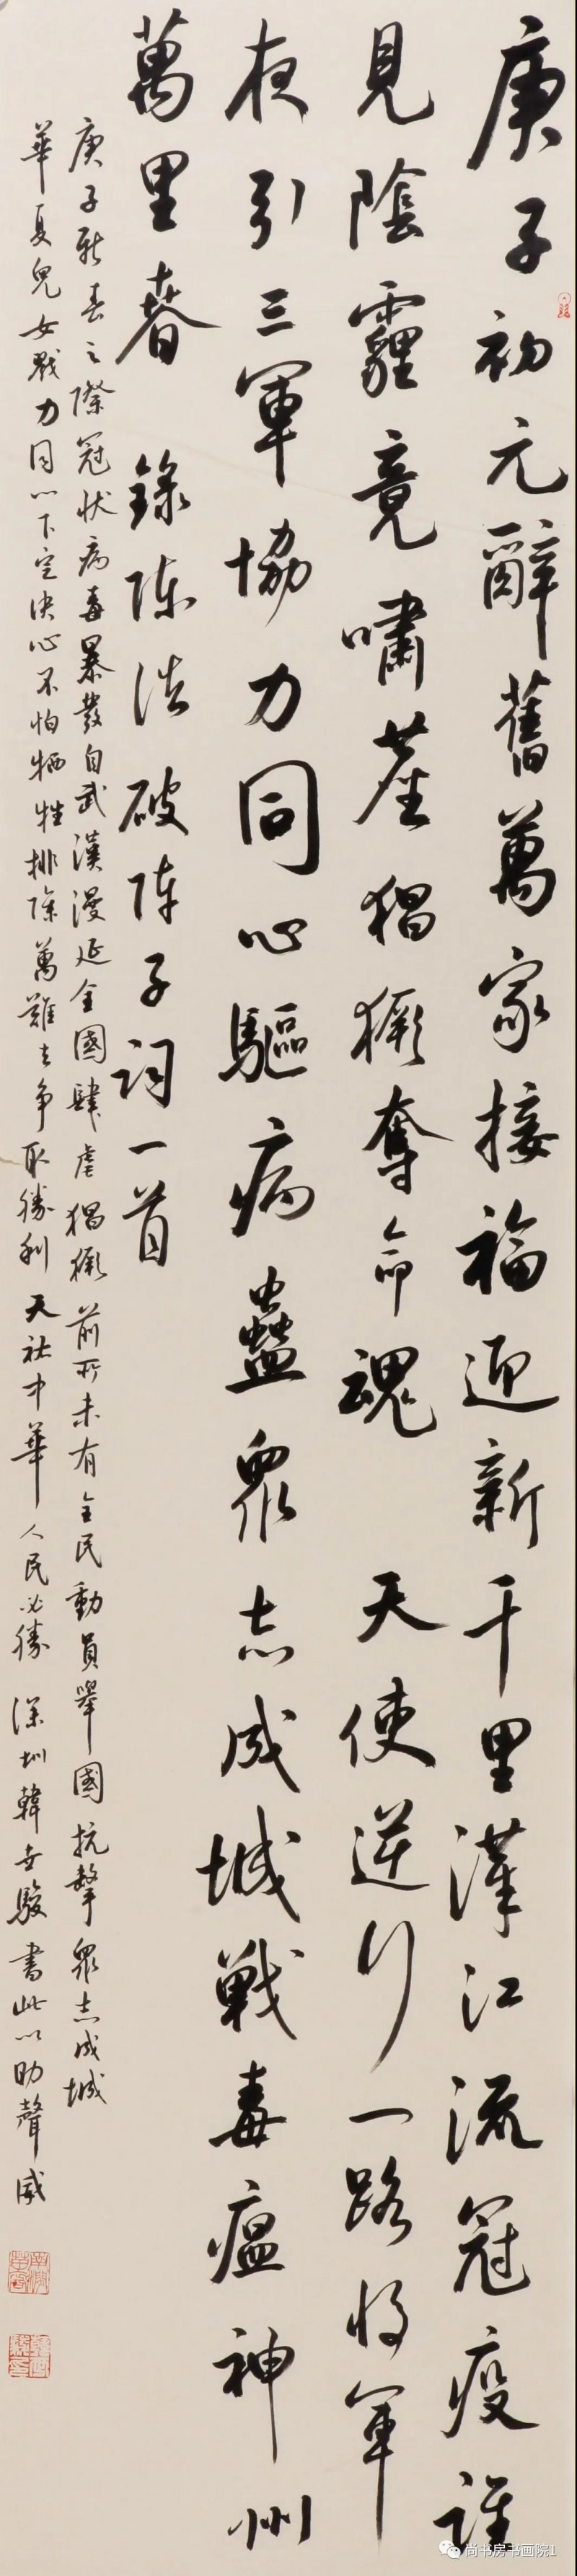 庚子初元辭舊萬家接福迎新千里漢江流冠疫誰
見陰霾竟嘯塵猖獗奪命魂 天使逆行一路將軍
夜引三軍協力同心驅病蠱眾志成城戰毒瘟神州
萬里春 錄陳浩破陣子詞一首
庚子新春之際冠狀病毒暴發自武漢漫延全國肆虐猖獗前所未有全民動員舉國抗擊眾志成城
華夏兒女戮力同心下定決心不怕牺牲排除萬難去争取勝利 天祐中華 人民必勝 深圳韓世駿書此以助聲威
尚书房书画院1